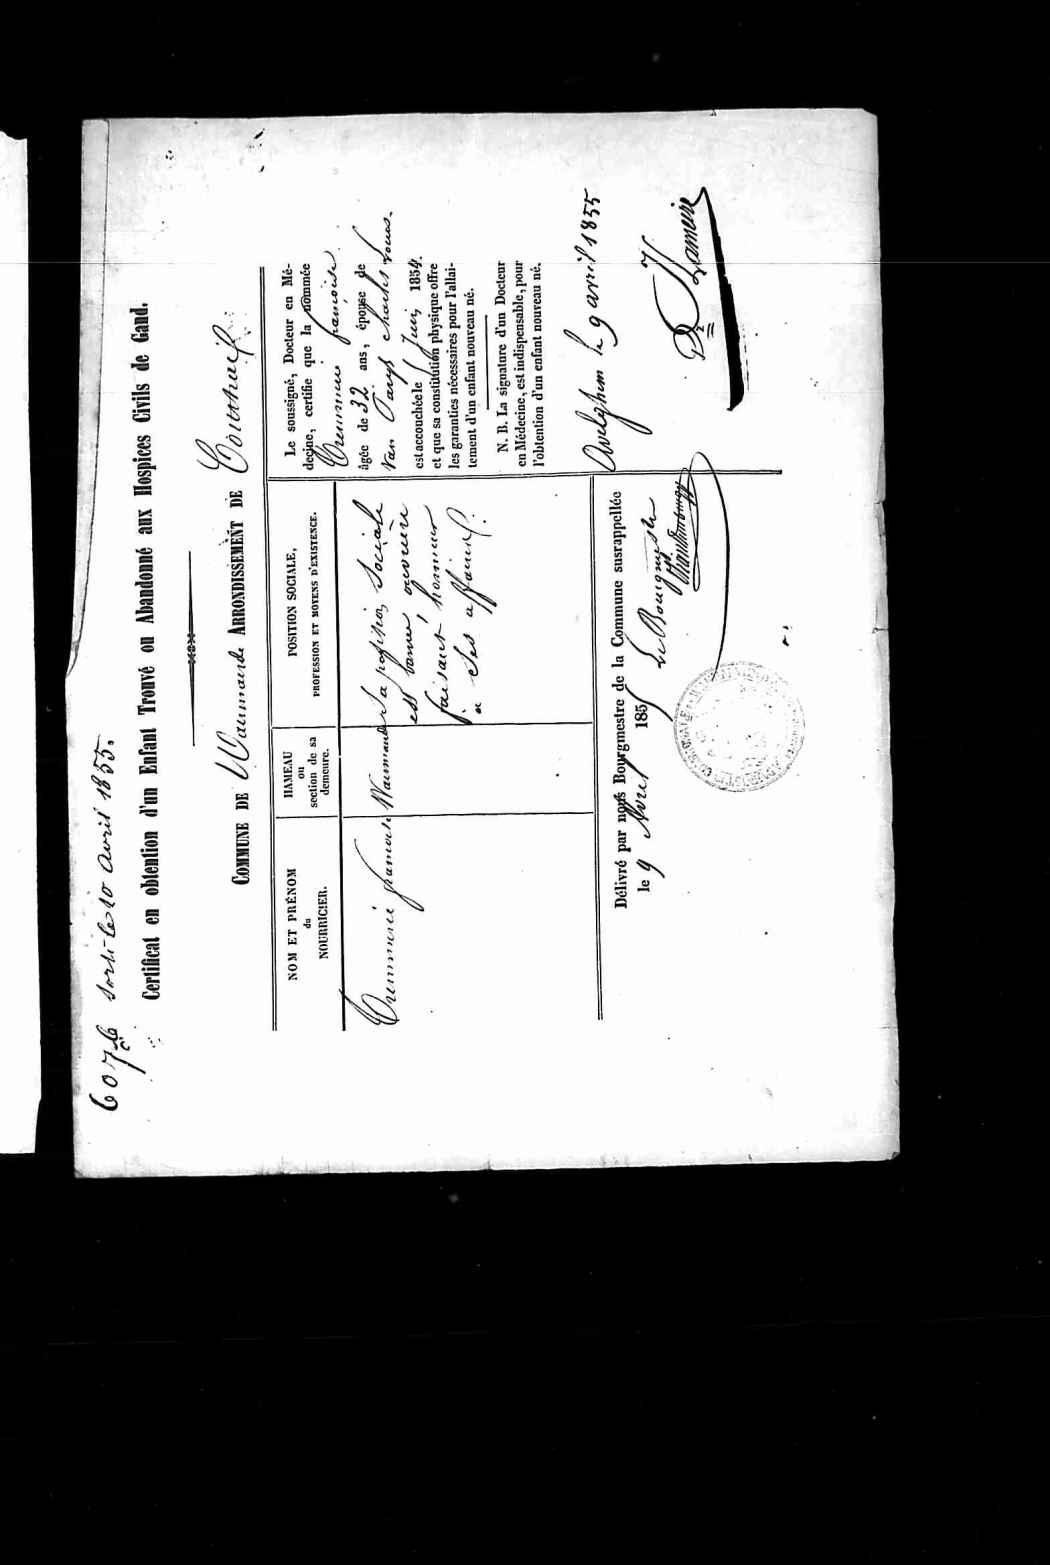 607 b
sorti le 10 avril 1855.
Certificat en obtention d'un Enfant Trouvé ou Abandonné aux Hospices Civils de Gand.
COMMUNE DE Waermaerde ARRONDISSEMENT DE Courtrai
NOM ET PRÉNOM
du
NOURRICIER.
HAMEAU
ou
section de sa
demeure.
POSITION SOCIALE,
PROFESSION ET MOYENS D'EXISTENCE.
françoise
Sa position Sociale
est bonne ouvrière
faisant honneur
a ses affaires.
Le soussigné, Docteur en Mé-
decine, certifie que la nommée
françoise
âgée de 32 ans, épouse de
Van charles Louis.
est accouchée le Juin 1854.
et que sa constitution physique offre
les garanties nécessaires pour l'allai-
tement d'un enfant nouveau né.
N. B. La signature d'un Docteur
en Médecine, est indispensable, pour
l'obtention d'un enfant nouveau né.
Avelghem le 9 avril 1855
Dr
Délivré par nous Bourgmestre de la Commune susrappellée
le 9 Avril 1855
Le Bourgmestre